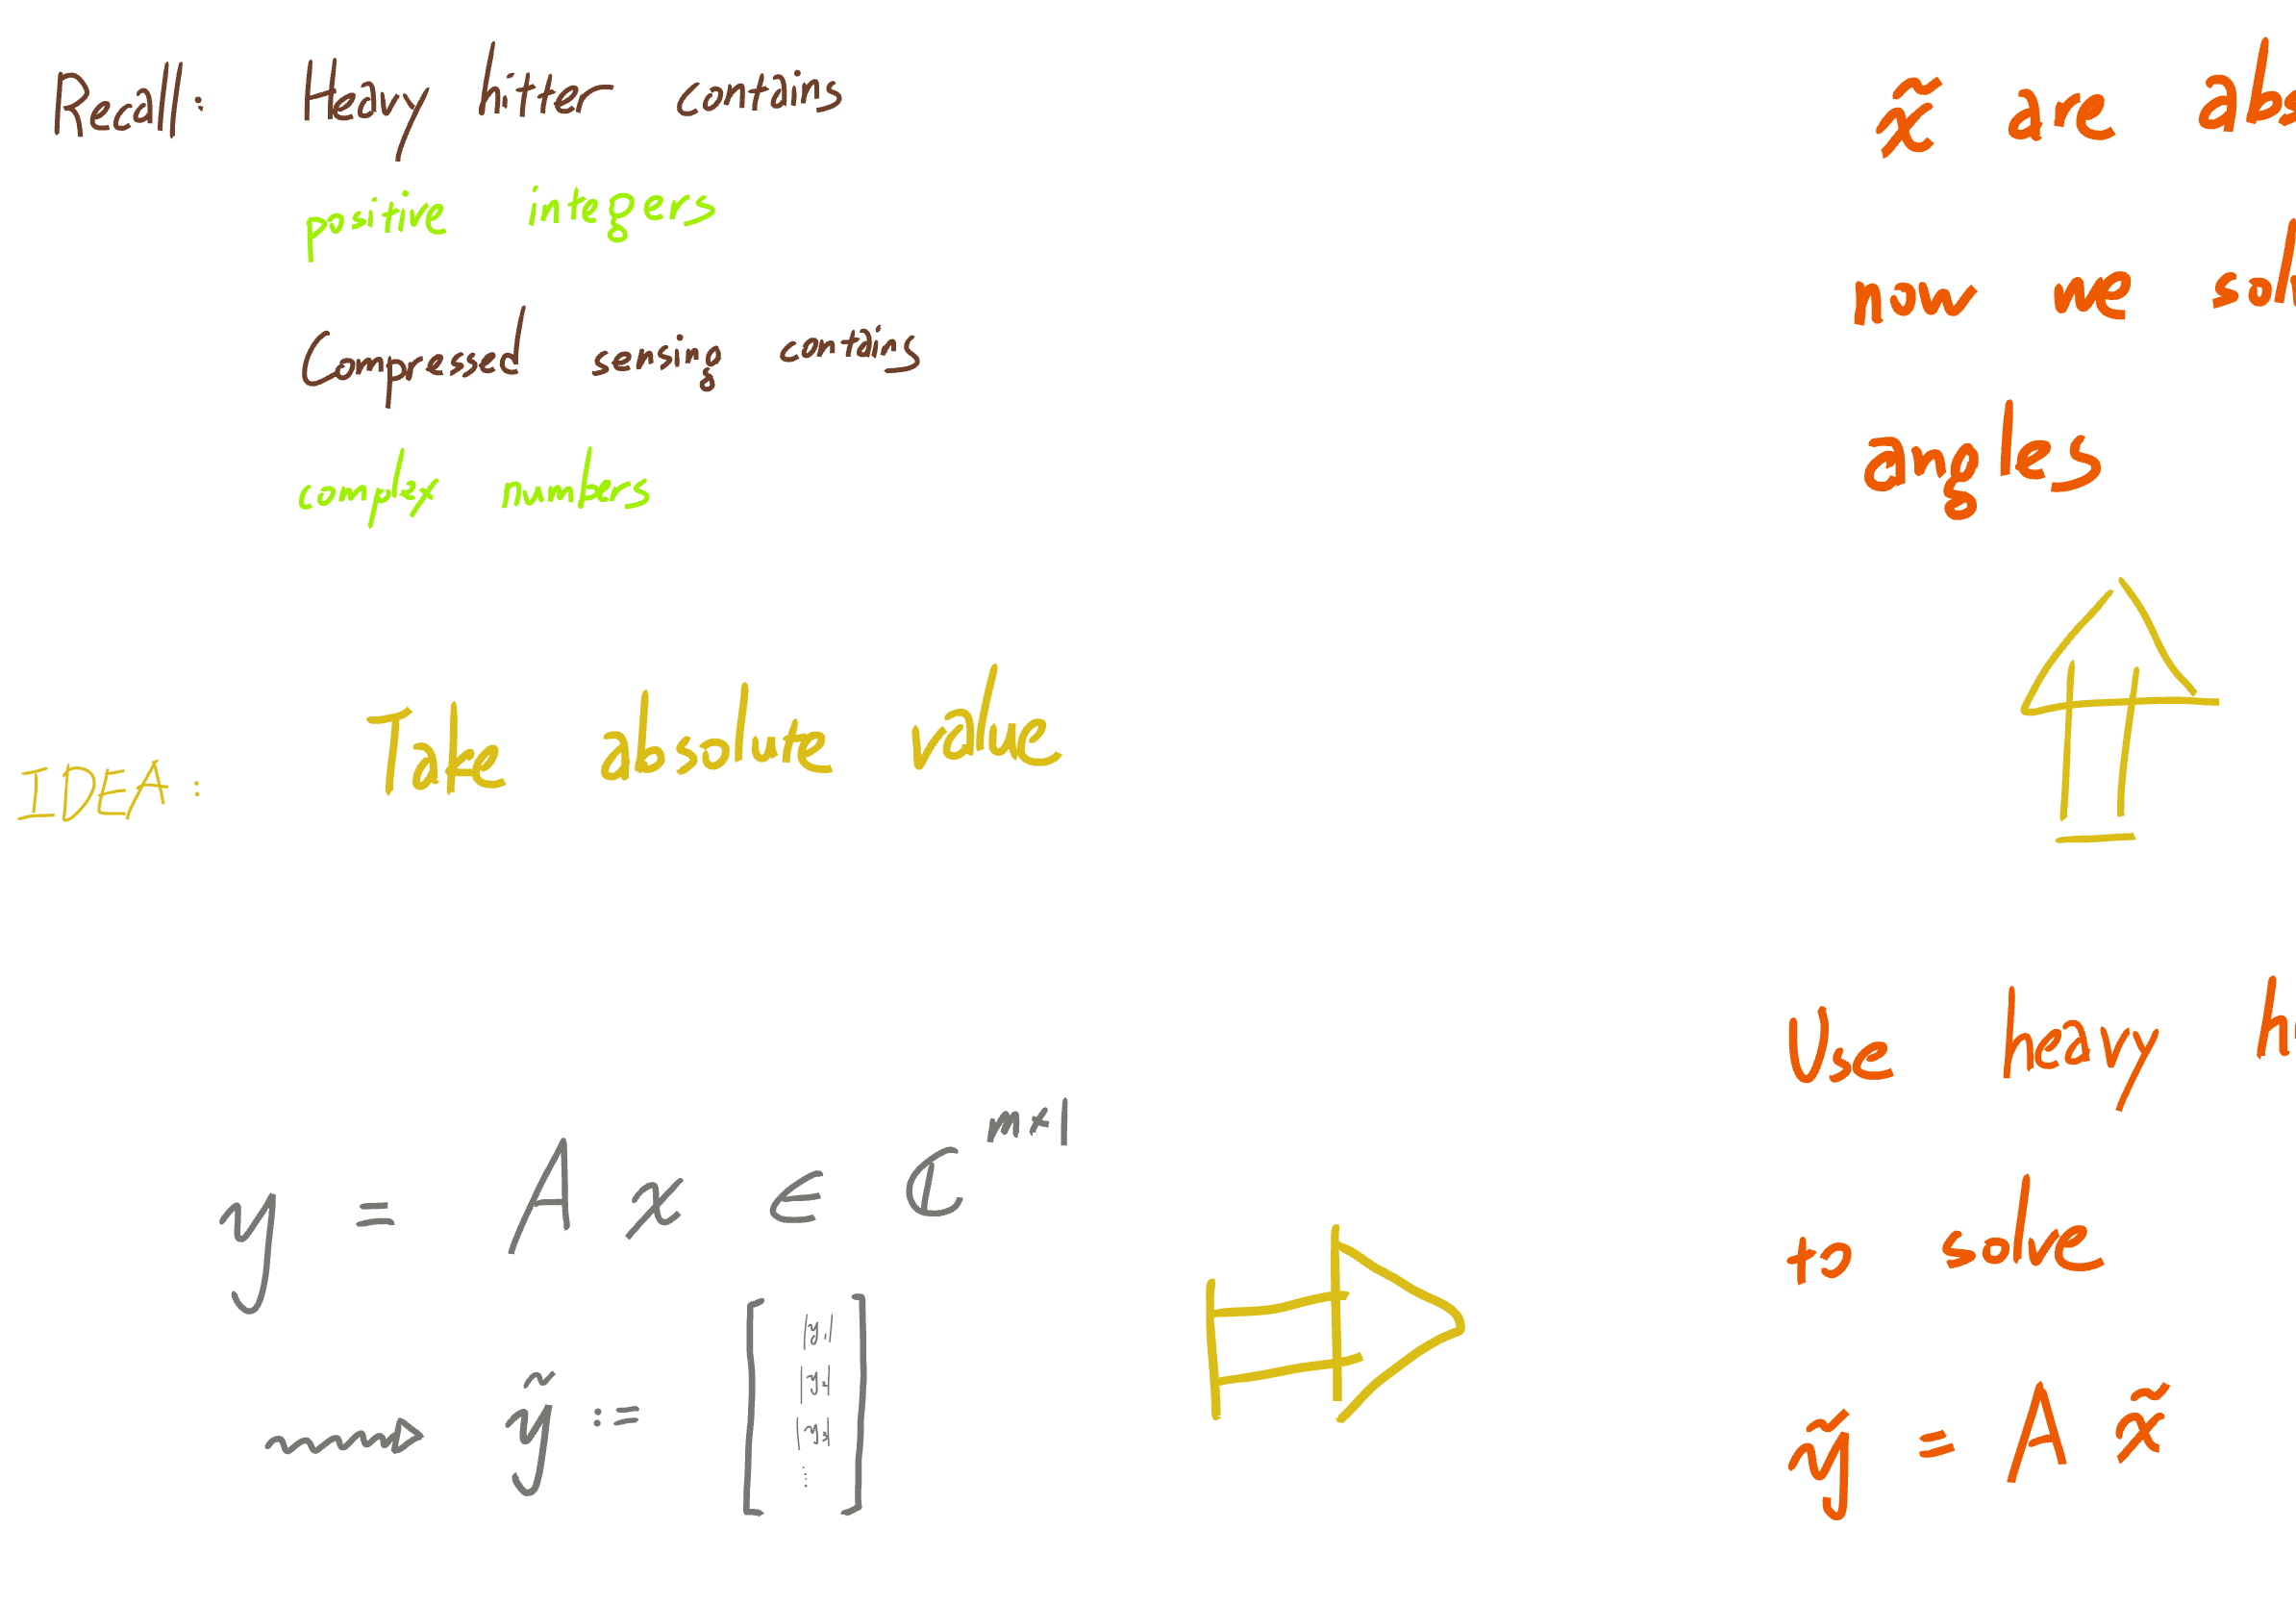 Recall: Heavy hitter contains
positive integers
Compressed sensing contains
complex numbers
IDEA: Take absolute value
y = A x ∈ ℂ^{m×1}
ỹ := [ |y₁|
|y₂|
|y₃|
⋮ ]
x̃ are abs
now we sol
angles
Use heavy h
to solve
ỹ = A x̃